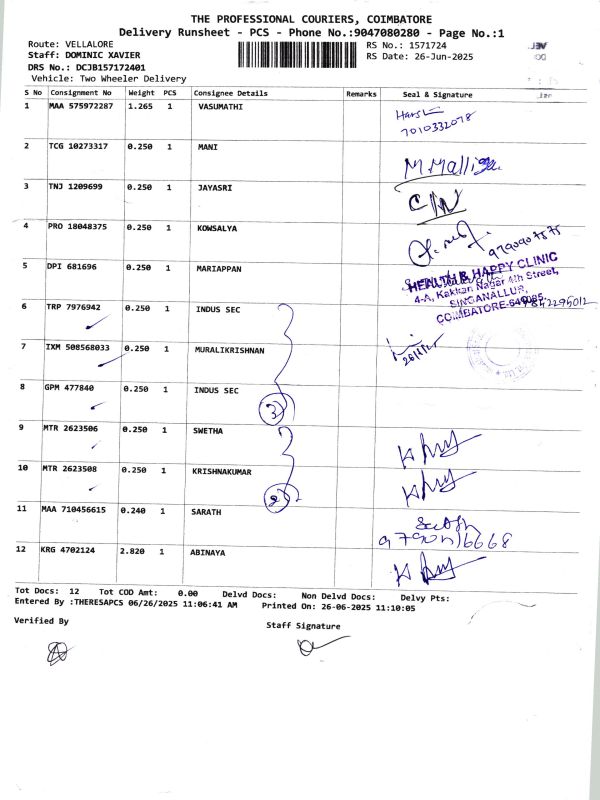 THE PROFESSIONAL COURIERS, COIMBATORE
Delivery Runsheet - PCS - Phone No.:9047080280 - Page No.:1
Route: VELLALORE
RS No.: 1571724
Staff: DOMINIC XAVIER
RS Date: 26-Jun-2025
DRS No.: DCJB157172401
Vehicle: Two Wheeler Delivery
S No Consignment No Weight PCS Consignee Details Remarks Seal & Signature
1 MAA 575972287 1.265 1 VASUMATHI
7010332078
2 TCG 10273317 0.250 1 MANI
3 TNJ 1209699 0.250 1 JAYASRI
4 PRO 18048375 0.250 1 KOWSALYA
5 DPI 681696 0.250 1 MARIAPPAN
HEALTH & HAPPY CLINIC
4-A, Kakkan Nagar 4th Street,
SINGANALLUR,
COIMBATORE-
6 TRP 7976942 0.250 1 INDUS SEC
7 IXM 508568033 0.250 1 MURALIKRISHNAN
8 GPM 477840 0.250 1 INDUS SEC
3
9 MTR 2623506 0.250 1 SWETHA
10 MTR 2623508 0.250 1 KRISHNAKUMAR
2
11 MAA 710456615 0.240 1 SARATH
12 KRG 4702124 2.820 1 ABINAYA
Tot Docs: 12 Tot COD Amt: 0.00 Delvd Docs: Non Delvd Docs: Delvy Pts:
Entered By :THERESAPCS 06/26/2025 11:06:41 AM Printed On: 26-06-2025 11:10:05
Verified By
Staff Signature